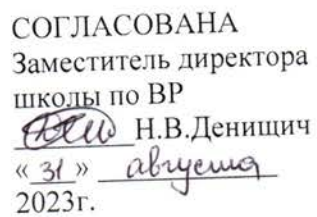 СОГЛАСОВАНА
Заместитель директора
школы по ВР
Н.В.Денищич
« 31 » августа
2023г.